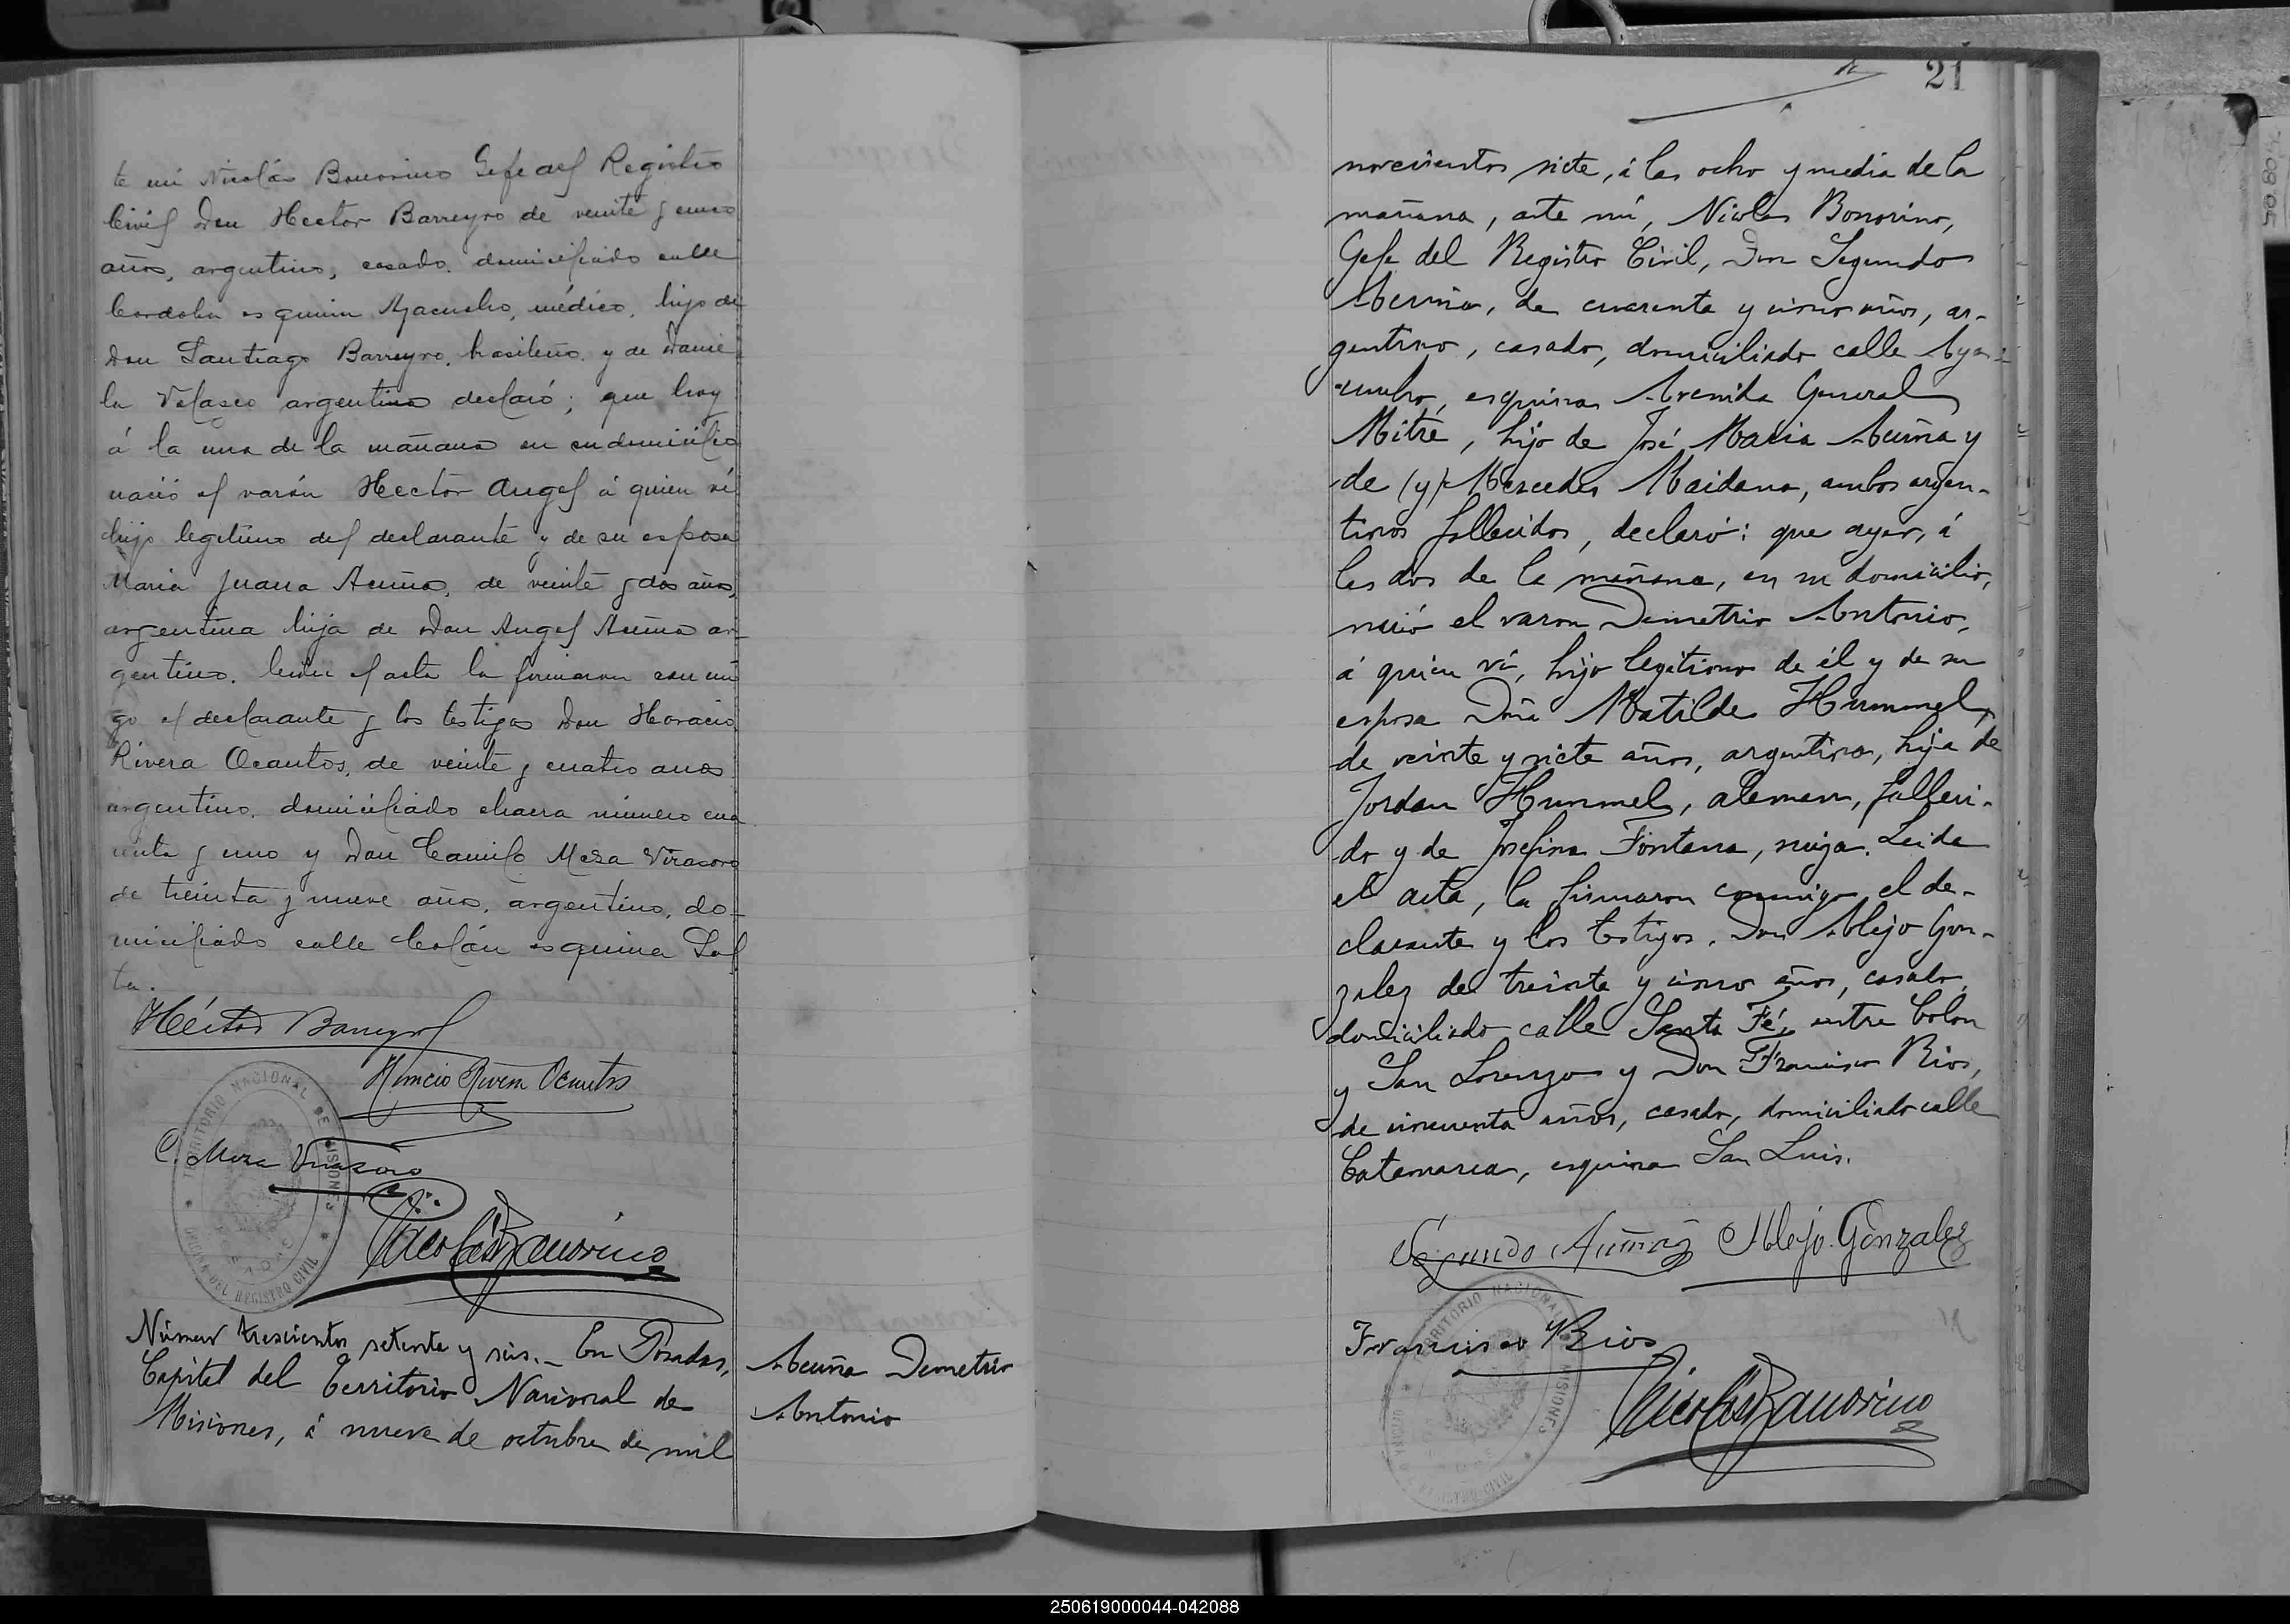 te mi Nicolás Bonorino Gefe del Registro
Civil Don Hector Barreyro de veinte y cinco
años, argentino, casado, domiciliado calle
Cordoba esquina Ayacucho, médico, hijo de
Don Santiago Barreyro, brasileño, y de Danie
la Velasco argentina declaró; que hoy
á la una de la mañana en su domicilio
nació el varón Hector Angel á quien ví
hijo legítimo del declarante y de su esposa
Maria Juana Acuña, de veinte y dos años,
argentina hija de Don Angel Acuña ar-
gentino. Leida el acta la firmaron conmi
go el declarante y los testigos Don Horacio
Rivera Ocantos, de veinte y cuatro años
argentino, domiciliado chacra número cua
renta y uno y Don Camilo Meza Virasoro
de treinta y nueve años, argentino, do-
miciliado calle Colón esquina Sal
ta.
Héctor Barreyro
Horacio Rivera Ocantos
C. Meza Virasoro
TERRITORIO NACIONAL DE MISIONES
OFICINA DEL REGISTRO CIVIL
POSADAS
Nicolás Bonorino
Número trescientos setenta y seis.- En Posadas,
Capital del Territorio Nacional de
Misiones, á nueve de octubre de mil
Acuña Demetrio
Antonio
21
novecientos siete, á las ocho y media de la
mañana, ante mí, Nicolas Bonorino,
Gefe del Registro Civil, Don Segundo
Acuña, de cuarenta y cinco años, ar-
gentino, casado, domiciliado calle Aya-
cucho, esquina Avenida General
Mitre, hijo de José Maria Acuña y
de (y) Mercedes Maidana, ambos argen-
tinos fallecidos, declaró: que ayer, á
las dos de la mañana, en su domicilio,
nació el varon Demetrio Antonio,
á quien ví, hijo legitimo de él y de su
esposa Doña Matilde Hummel,
de veinte y siete años, argentina, hija de
Jordan Hummel, aleman, falleci-
do y de Josefina Fontana, suiza. Leida
el acta, la firmaron conmigo el de-
clarante y los testigos, Don Alejo Gon-
zalez de treinta y cinco años, casado,
domiciliado calle Santa Fé, entre Colon
y San Lorenzo y Don Francisco Rios,
de cincuenta años, casado, domiciliado calle
Catamarca, esquina San Luis.
Segundo Acuña
Alejo Gonzalez
Francisco Rios
TERRITORIO NACIONAL DE MISIONES
OFICINA DEL REGISTRO CIVIL
Nicolás Bonorino
250619000044-042088